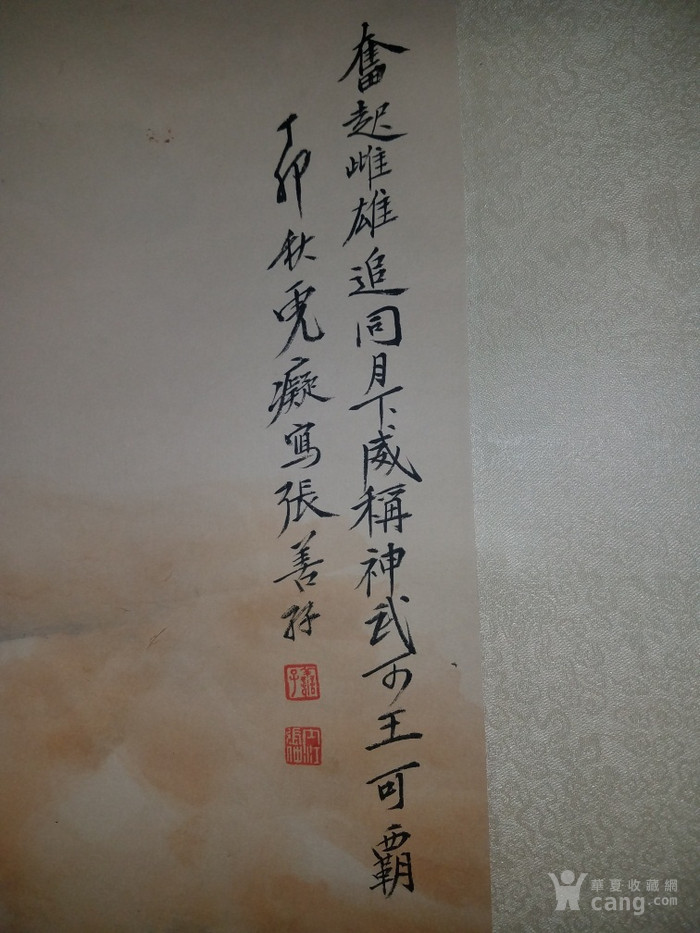 奮起雌雄追同月下威稱神武可王可覇
丁卯秋虎癡寫張善孖
善子
内江張
華夏收藏網
cang.com